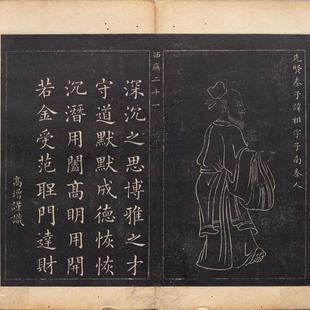 先賢秦子諱祖字子南秦人
西廡二十一
深沉之思博雅之才
守道默默成德恢恢
沉潛用闔高明用開
若金受范聖門達財
高增謹識